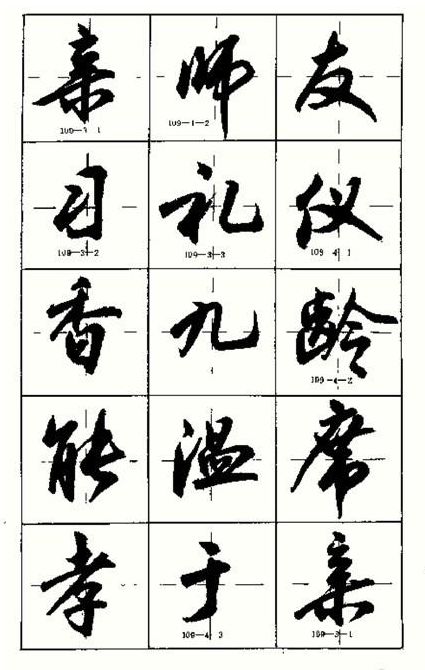 亲 师 友
109—3 1 109—1—2
习 礼 仪
109—3—2 109—3—3 109 4 1
香 九 龄
109—4—2
能 温 席
孝 于 亲
109—4 3 109—3—1